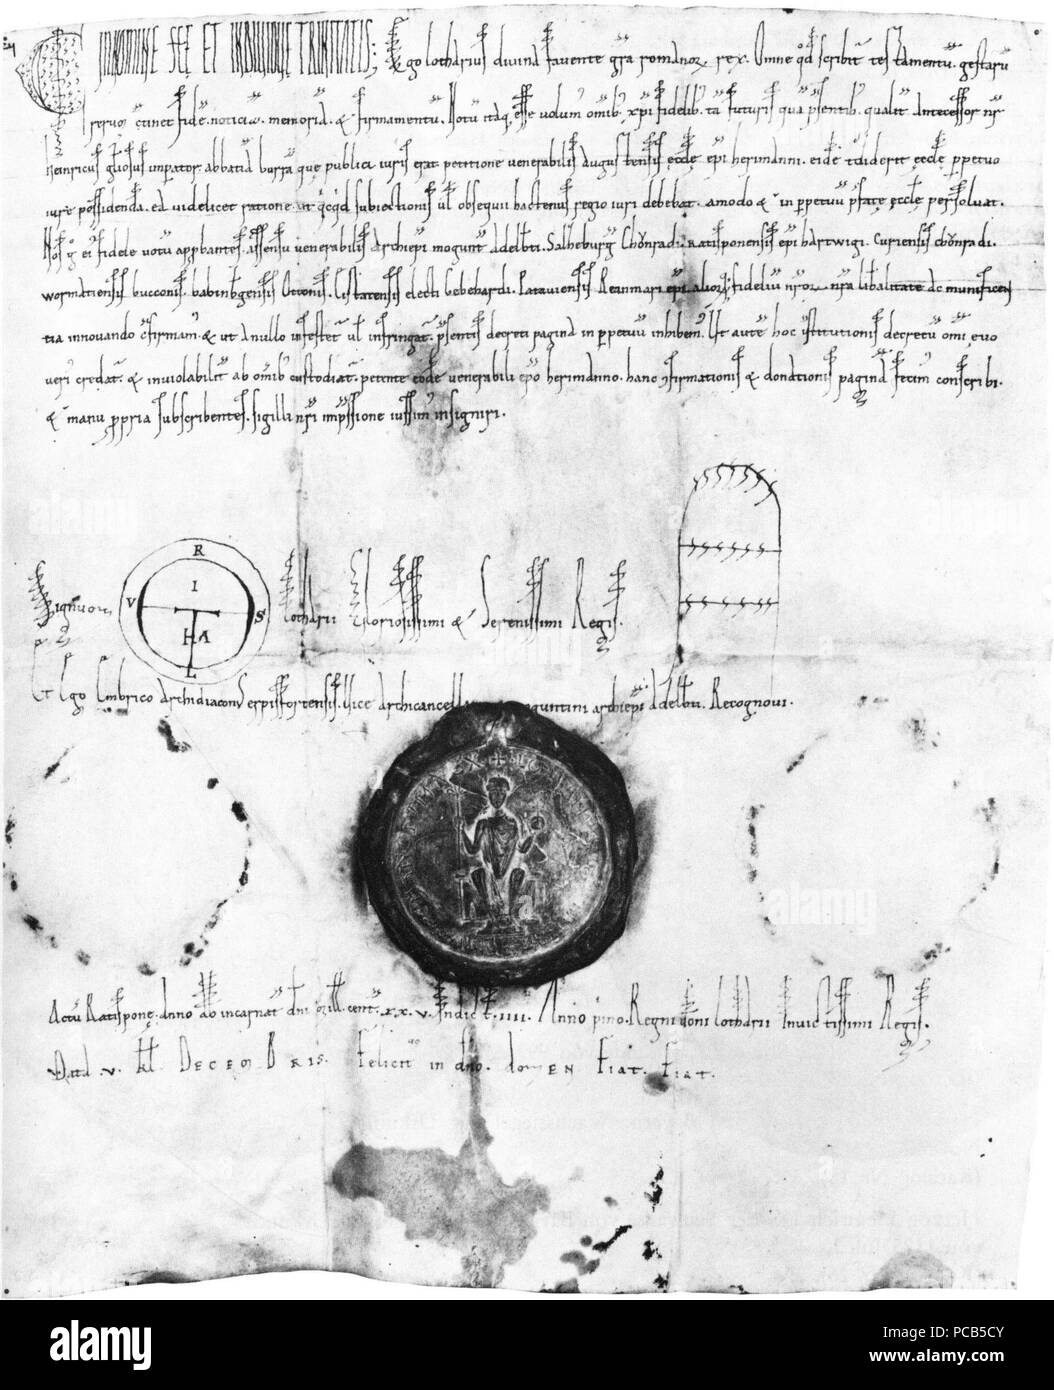 IN NOMINE SCE ET INDIVIDUE TRINITATIS; Ego lotharius divina favente gra romanor rex. Omne qd scribit testamentu gestaru
servor fide. noticia. memoria. & firmamentu. Notu itaq, esse volum omib, xpi fidelib, ta futuris qua psentib, qualit Antecessor nr
heinricus imperator abbatia burra que publici iuris erat petitione venerabilis augustensis eccle epi herimanni. eide tdiderit eccle ppetuo
iure possidenda. ea videlicet ratione ut qcqd subiectionis ul obsequii hactenus regio iuri debebat. amodo & in ppetuu pfate eccle psolvat.
Nos g ei fidele votu appbantes. assensu venerabilis archiepi mogunt adelbti. Salheburg Chonradi. Ratisponensis epi hartwigi. Curiensis chonradi.
wormatiensis bucconis. babinbgensis Ottonis. Eistatensis electi Gebehardi. Pataviensis Reginmari epi. alior fideliu nror nra libalitate ac munificen
tia innovando cfirmam, & ut a nullo infestet ul infringat. psentis decreti pagina in ppetuu inhibem, Ut aute hoc cstitutionis decretu omi evo
veri credat. & inviolabilit ab omib, custodiat. petente eode venerabili epo herimanno. hanc cfirmationis & donationis pagina fecim conscribi.
& manu ppria subscribentes. sigilli nri impssione iussim, insigniri.
Signum Lotharii Gloriosissimi & Serenissimi Regis.
R
I
V S
H A
L
Et Ego Embrico Archidiacon, erpisfortensis. Vice Archicancell guntini archiepi Adelbti. Recognovi.
Actu Ratispone. Anno ab incarnat dni mill. cent. xx.v. Indict. IIII. Anno pmo. Regni doni lotharii Invictissimi Regis.
Data .v. kl. DECEMBRIS. Felicit in dno. domEN FIAT. FIAT.
alamy
Image ID: PCB5CY
www.alamy.com